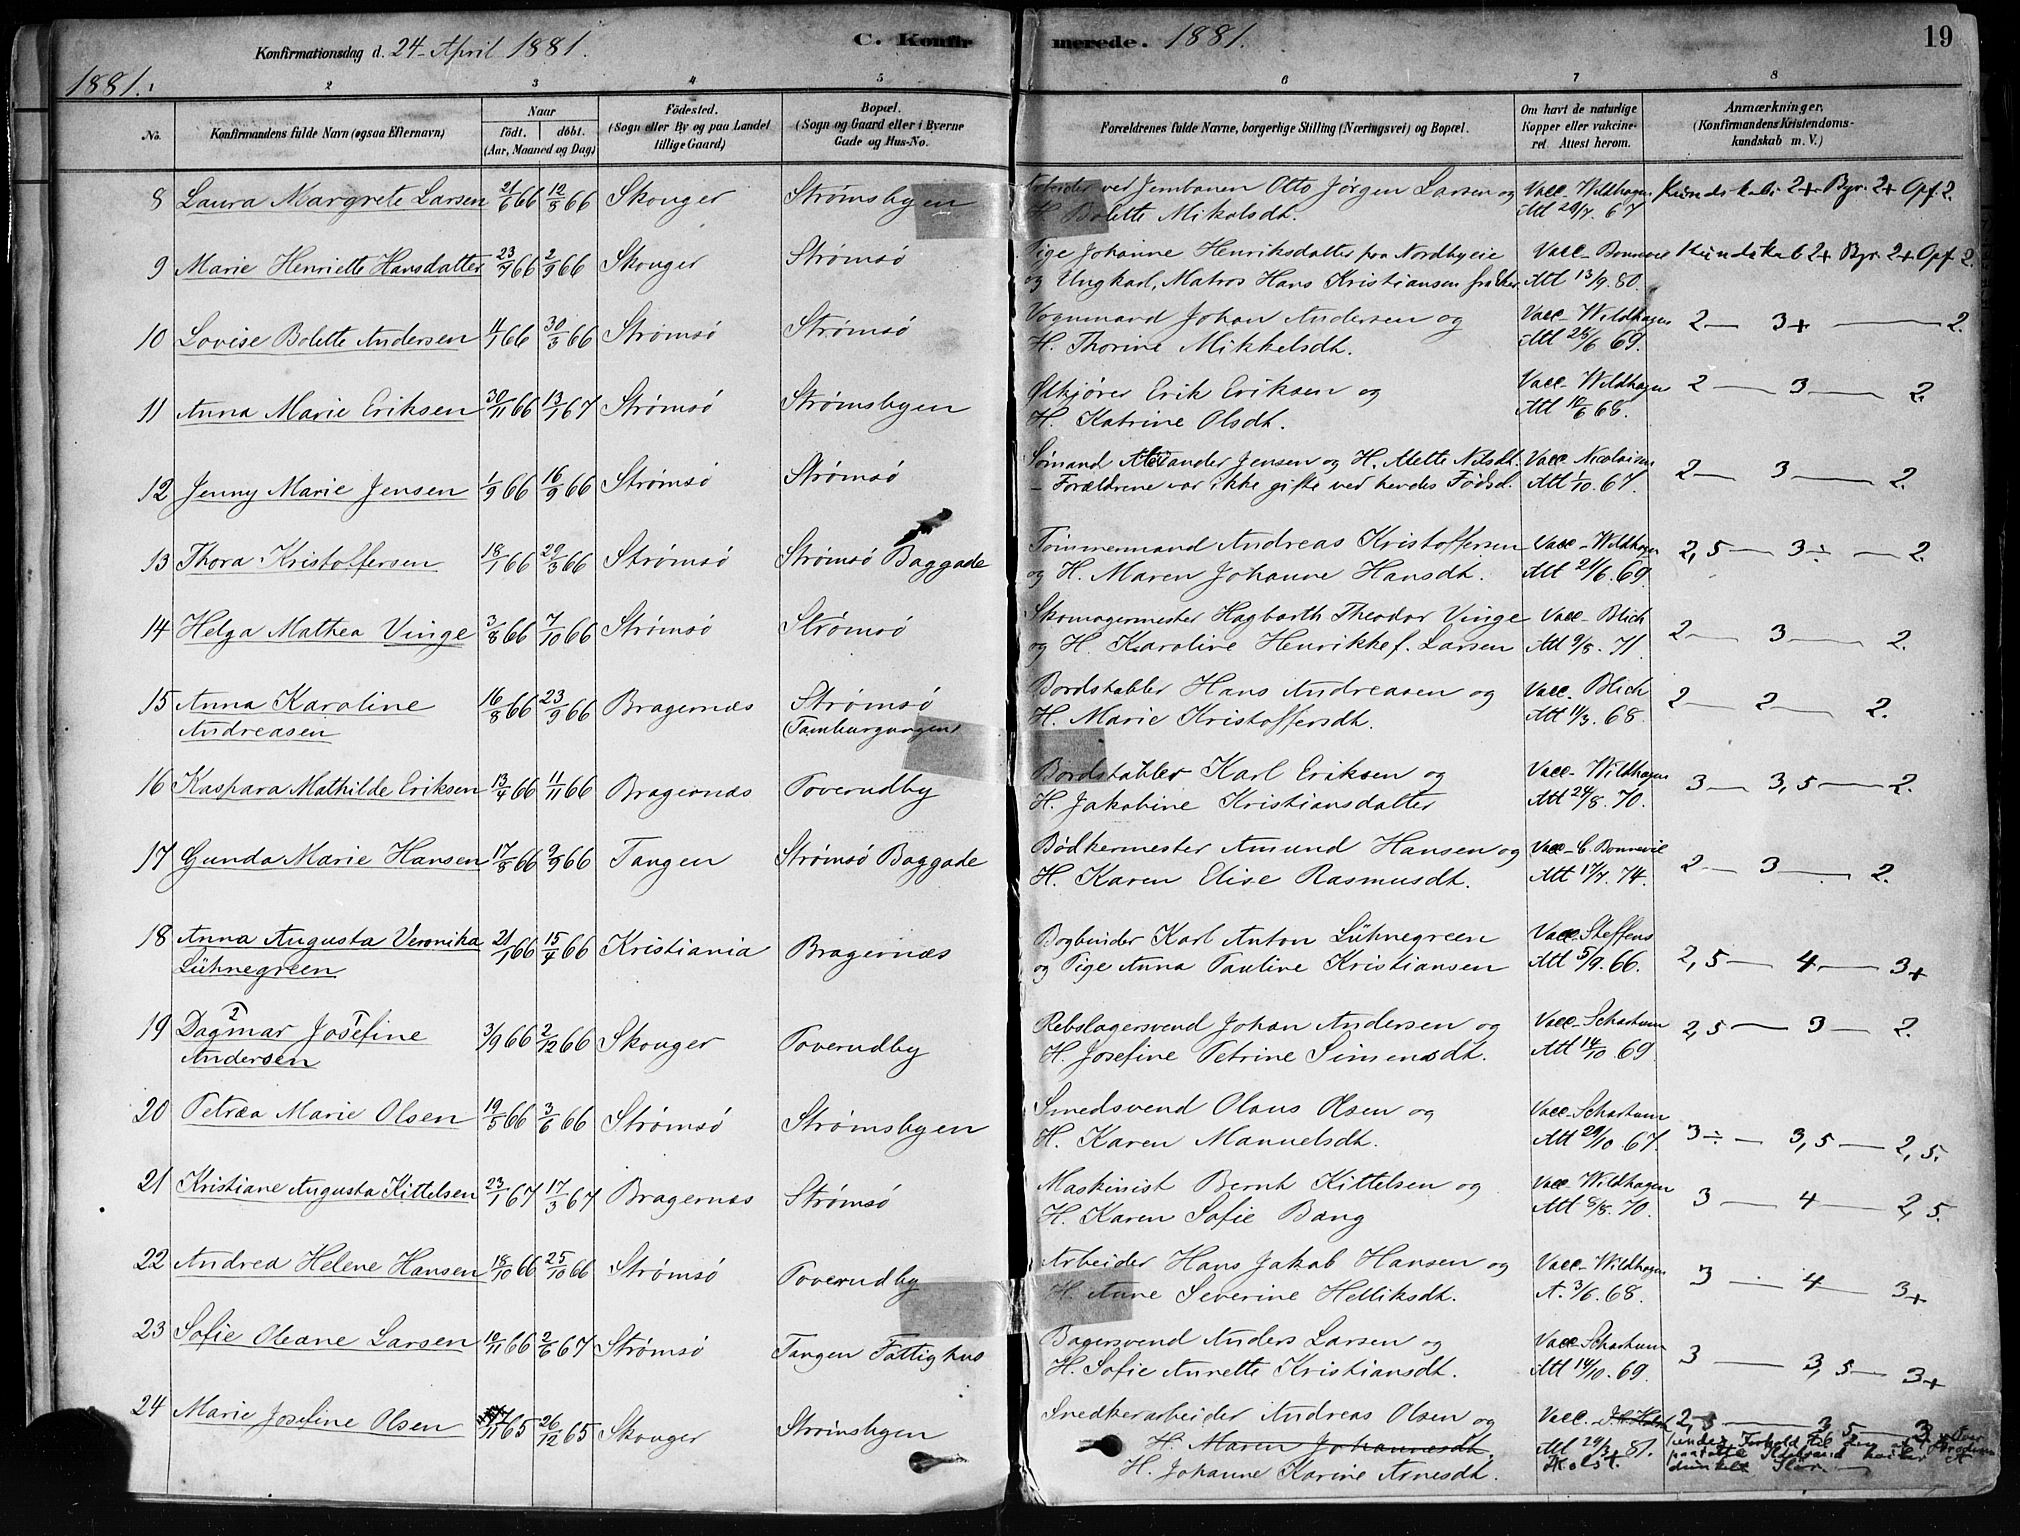 Konfirmationsdag d. 24 April 1881. C. Konfirmerede. 1881. 19
1881.
1 2 3 4 5 6 7 8
No. Konfirmandens fulde Navn (ogsaa Efternavn) Naar födt. döbt. (Aar, Maaned og Dag) Födested. (Sogn eller By og paa Landet tillige Gaard) Bopæl. (Sogn og Gaard eller i Byerne Gade og Hus-No. Forældrenes fulde Navne, borgerlige Stilling (Næringsvei) og Bopæl. Om havt de naturlige Kopper eller vakcineret. Attest herom. Anmærkninger. (Konfirmandens Kristendomskundskab m. V.)
8 Laura Margrete Larsen 21/6 66 12/8 66 Skouger Strømsbyen Arbeider ved Jernbanen Otto Jørgen Larsen og Vacc. Wildhagen Kundskab 2+ Byr. 2+ Opf. 2.
H. Bolette Mikalsdt. Att 29/7. 67
9 Marie Henriette Hansdatter 23/7 66 2/9 66 Skouger Strømsø Pige Johanne Henriksdatter fra Nordbyeie Vacc. Bonnevie Kundskab 2+ Byr. 2+ Opf. 2.
og Ungkarl, Matros Hans Kristiansen Att 13/9. 80.
10 Lovise Bolette Andersen 4/1 66 30/3 66 Strømsø Strømsø Vognmand Johan Andersen og Vacc. Wildhagen 2 — 3+ — 2.
H. Thorine Mikkelsdt. Att 26/6 69.
11 Anna Marie Eriksen 30/11 66 13/1 67 Strømsø Strømsbyen Ølkjører Erik Eriksen og Vacc. Wildhagen 2 — 3 — 2.
H. Katrine Olsdt. Att 12/6 68.
12 Jenny Marie Jensen 1/9 66 16/9 66 Strømsø Strømsø Sømand Alexander Jensen og H. Alette Nilsdt. Vacc. Nicolaisen 2 — 3 — 2.
– Forældrene var ikke gifte ved hendes Fødsel. Att 1/10. 67.
13 Thora Kristoffersen 18/1 66 29/3 66 Strømsø Strømsø Baggade Tømmermand Andreas Kristoffersen Vacc. Wildhagen 2,5 — 3÷ — 2.
og H. Maren Johanne Hansdt. Att 21/6. 69.
14 Helga Mathea Vinge 3/8 66 7/10 66 Strømsø Strømsø Skomagermester Hagbarth Theodor Vinge Vacc. Blich 2 — 3 — 2.
og H. Karoline Henrikke f. Larsen Att 9/8. 71.
15 Anna Karoline 16/8 66 23/9 66 Bragernæs Strømsø Bordstabler Hans Andreasen og Vacc. Blich 2 — 2 — 2.
Andreasen Tamburgangen H. Marie Kristoffersdt. Att 1/3. 68.
16 Kaspara Mathilde Eriksen 13/4 66 11/11 66 Bragernæs Toverudby Bordstabler Karl Eriksen og Vacc. Wildhagen 3 — 3,5 — 2.
H. Jakobine Kristiansdatter Att 24/8. 70.
17 Gunda Marie Hansen 17/8 66 9/9 66 Tangen Strømsø Baggade Bødkermester Amund Hansen og Vacc. C. Bonnevie 2 — 3 — 2.
H. Karen Elise Rasmusdt. Att 17/7. 74.
18 Anna Augusta Veronika 21/1 66 15/4 66 Kristiania Bragernæs Bogbinder Karl Anton Lühnegreen Vacc. Steffens 2,5 — 4 — 3+
Lühnegreen og Pige Anna Pauline Kristiansen Att 5/9. 66.
2 1
19 Dagmar Josefine 3/9 66 2/12 66 Skouger Toverudby Rebslagersvend Johan Andersen og Vacc. Schartum 2,5 — 3 — 2.
Andersen H. Josefine Petrine Simensdt. Att 14/10 69.
20 Petrea Marie Olsen 19/5 66 3/6 66 Strømsø Strømsbyen Smedsvend Olaus Olsen og Vacc. Schartum 3÷ — 3,5 — 2,5.
H. Karen Manuelsdt. Att 29/10 67.
21 Kristiane Augusta Kittelsen 23/1 67 17/3 67 Bragernæs Strømsø Maskinist Bernt Kittelsen og Vacc. Wildhagen 3 — 4 — 2,5.
H. Karen Sofie Bang Att 8/8. 70.
22 Andrea Helene Hansen 18/10 66 25/10 66 Strømsø Toverudby Arbeider Hans Jakob Hansen og Vacc. Wildhagen 3 — 4 — 3+
H. Anne Severine Helliksdt. A. 3/6. 68.
23 Sofie Oleane Larsen 19/11 66 2/6 67 Strømsø Tangen Fattighus Bagersvend Anders Larsen og Vacc. Schartum 3 — 3,5 — 3+
H. Sofie Annette Kristiansdt. Att 14/10. 69.
24 Marie Josefine Olsen 65 26/12 65 Skouger Strømsbyen Snedkerarbeider Andreas Olsen og Vacc. 2,5 — 3,5 — 3
H. Maren Johannesdt. Att 29/3 81.
H. Johanne Karine Arnesdt. Holst.